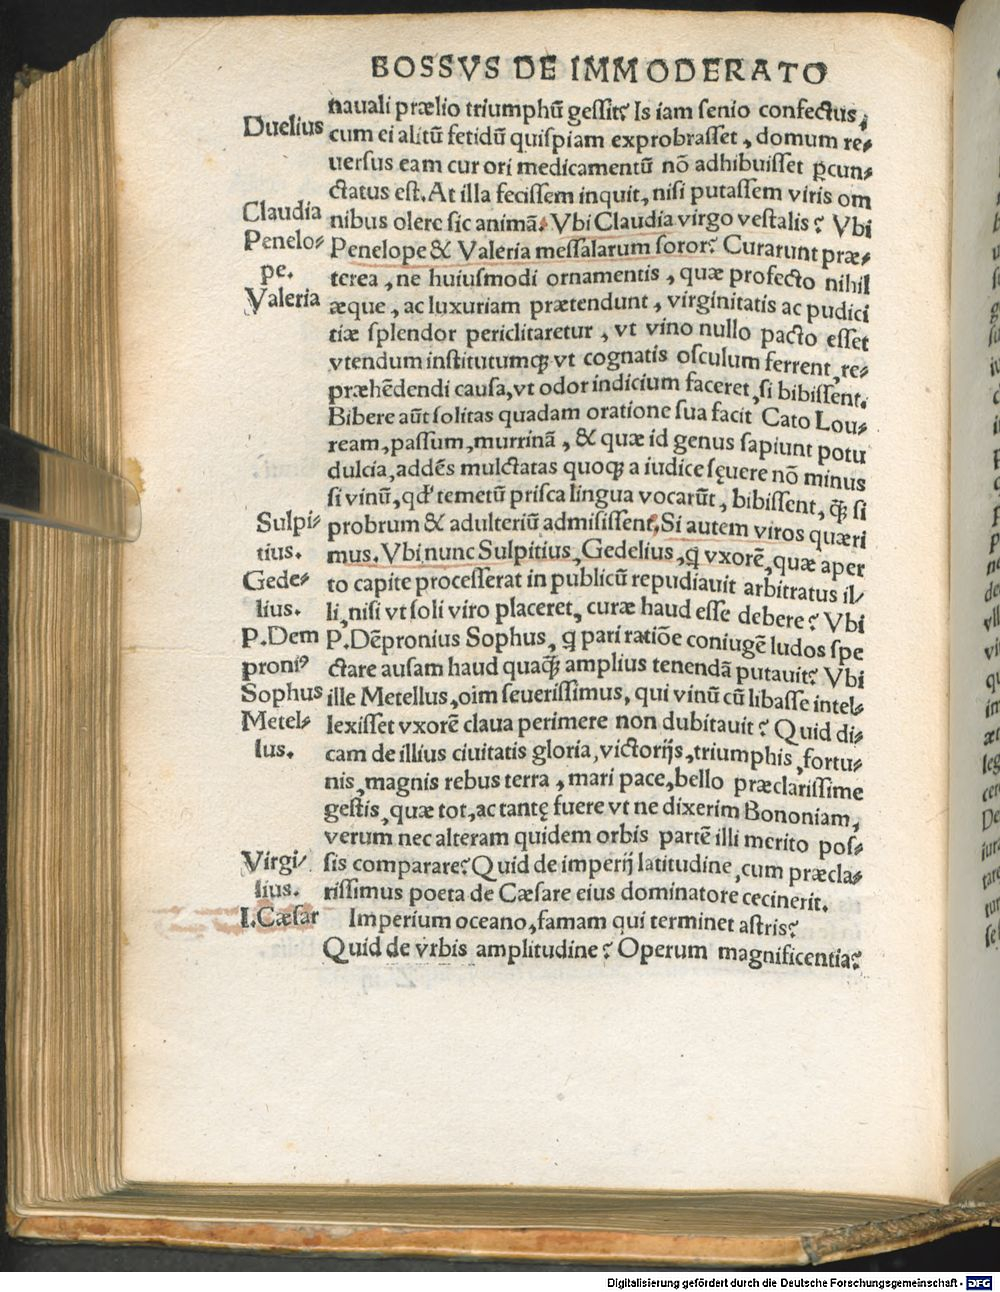 BOSSVS DE IMMODERATO
nauali prælio triumphũ gessit? Is iam senio confectus,
Duelius
cum ei alitũ fetidũ quispiam exprobrasset, domum re-
uersus eam cur ori medicamentũ nõ adhibuisset ꝑcun-
ctatus est. At illa fecissem inquit, nisi putassem viris om
Claudia
nibus olere sic animã. Vbi Claudia virgo vestalis? Vbi
Penelo-
pe.
Penelope & Valeria messalarum soror? Curarunt præ-
terea, ne huiusmodi ornamentis, quæ profecto nihil
Valeria
æque, ac luxuriam prætendunt, virginitatis ac pudici
tiæ splendor periclitaretur, vt vino nullo pacto esset
vtendum institutumqꝫ vt cognatis osculum ferrent, re-
præhẽdendi causa, vt odor indicium faceret, si bibissent.
Bibere aũt solitas quadam oratione sua facit Cato Lou-
ream, passum, murrinã, & quæ id genus sapiunt potu
dulcia, addẽs mulctatas quoqꝫ a iudice sęuere nõ minus
si vinũ, qđ temetũ prisca lingua vocarũt, bibissent, q̃ꝫ si
Sulpi-
tius.
probrum & adulteriũ admisissent. Si autem viros quæri
mus. Vbi nunc Sulpitius, Gedelius, q vxorẽ, quæ aper
Gede-
lius.
to capite processerat in publicũ repudiauit arbitratus il-
li, nisi vt soli viro placeret, curæ haud esse debere? Vbi
P. Dem
proniꝰ
Sophus
P. Dẽpronius Sophus, q pari ratiõe coniugẽ ludos spe
ctare ausam haud quaq̃ꝫ amplius tenendã putauit? Vbi
ille Metellus, oim seuerissimus, qui vinũ cũ libasse intel-
Metel-
lus.
lexisset vxorẽ claua perimere non dubitauit? Quid di-
cam de illius ciuitatis gloria, victorijs, triumphis, fortu-
nis, magnis rebus terra, mari pace, bello præclarissime
gestis, quæ tot, ac tantę fuere vt ne dixerim Bononiam,
verum nec alteram quidem orbis partẽ illi merito pos-
Virgi-
lius.
sis comparare? Quid de imperij latitudine, cum præcla-
rissimus poeta de Cæsare eius dominatore cecinerit.
I. Cæsar
Imperium oceano, famam qui terminet astris?
Quid de vrbis amplitudine? Operum magnificentia?
Digitalisierung gefördert durch die Deutsche Forschungsgemeinschaft - DFG